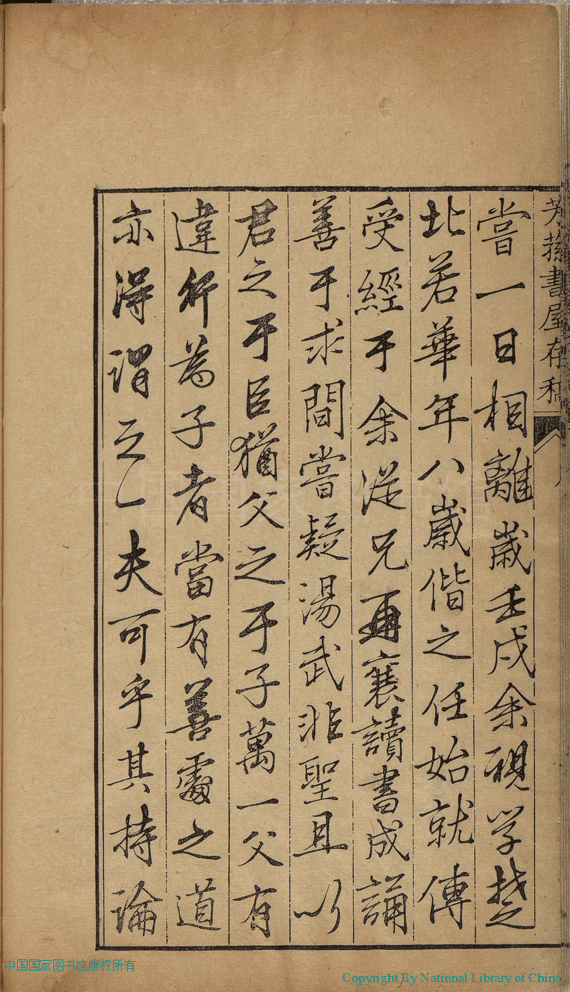 芳蓀書屋存稿
嘗一日相離歲壬戌余視学楚
北若華年八歲偕之任始就傳
受經于余從兄再襄讀書成誦
善于求間嘗疑湯武非聖且以
君之于臣猶父之于子萬一父有
違行為子者當有善處之道
亦得謂之一夫可乎其持論
中国国家图书馆版权所有
Copyright By National Library of China